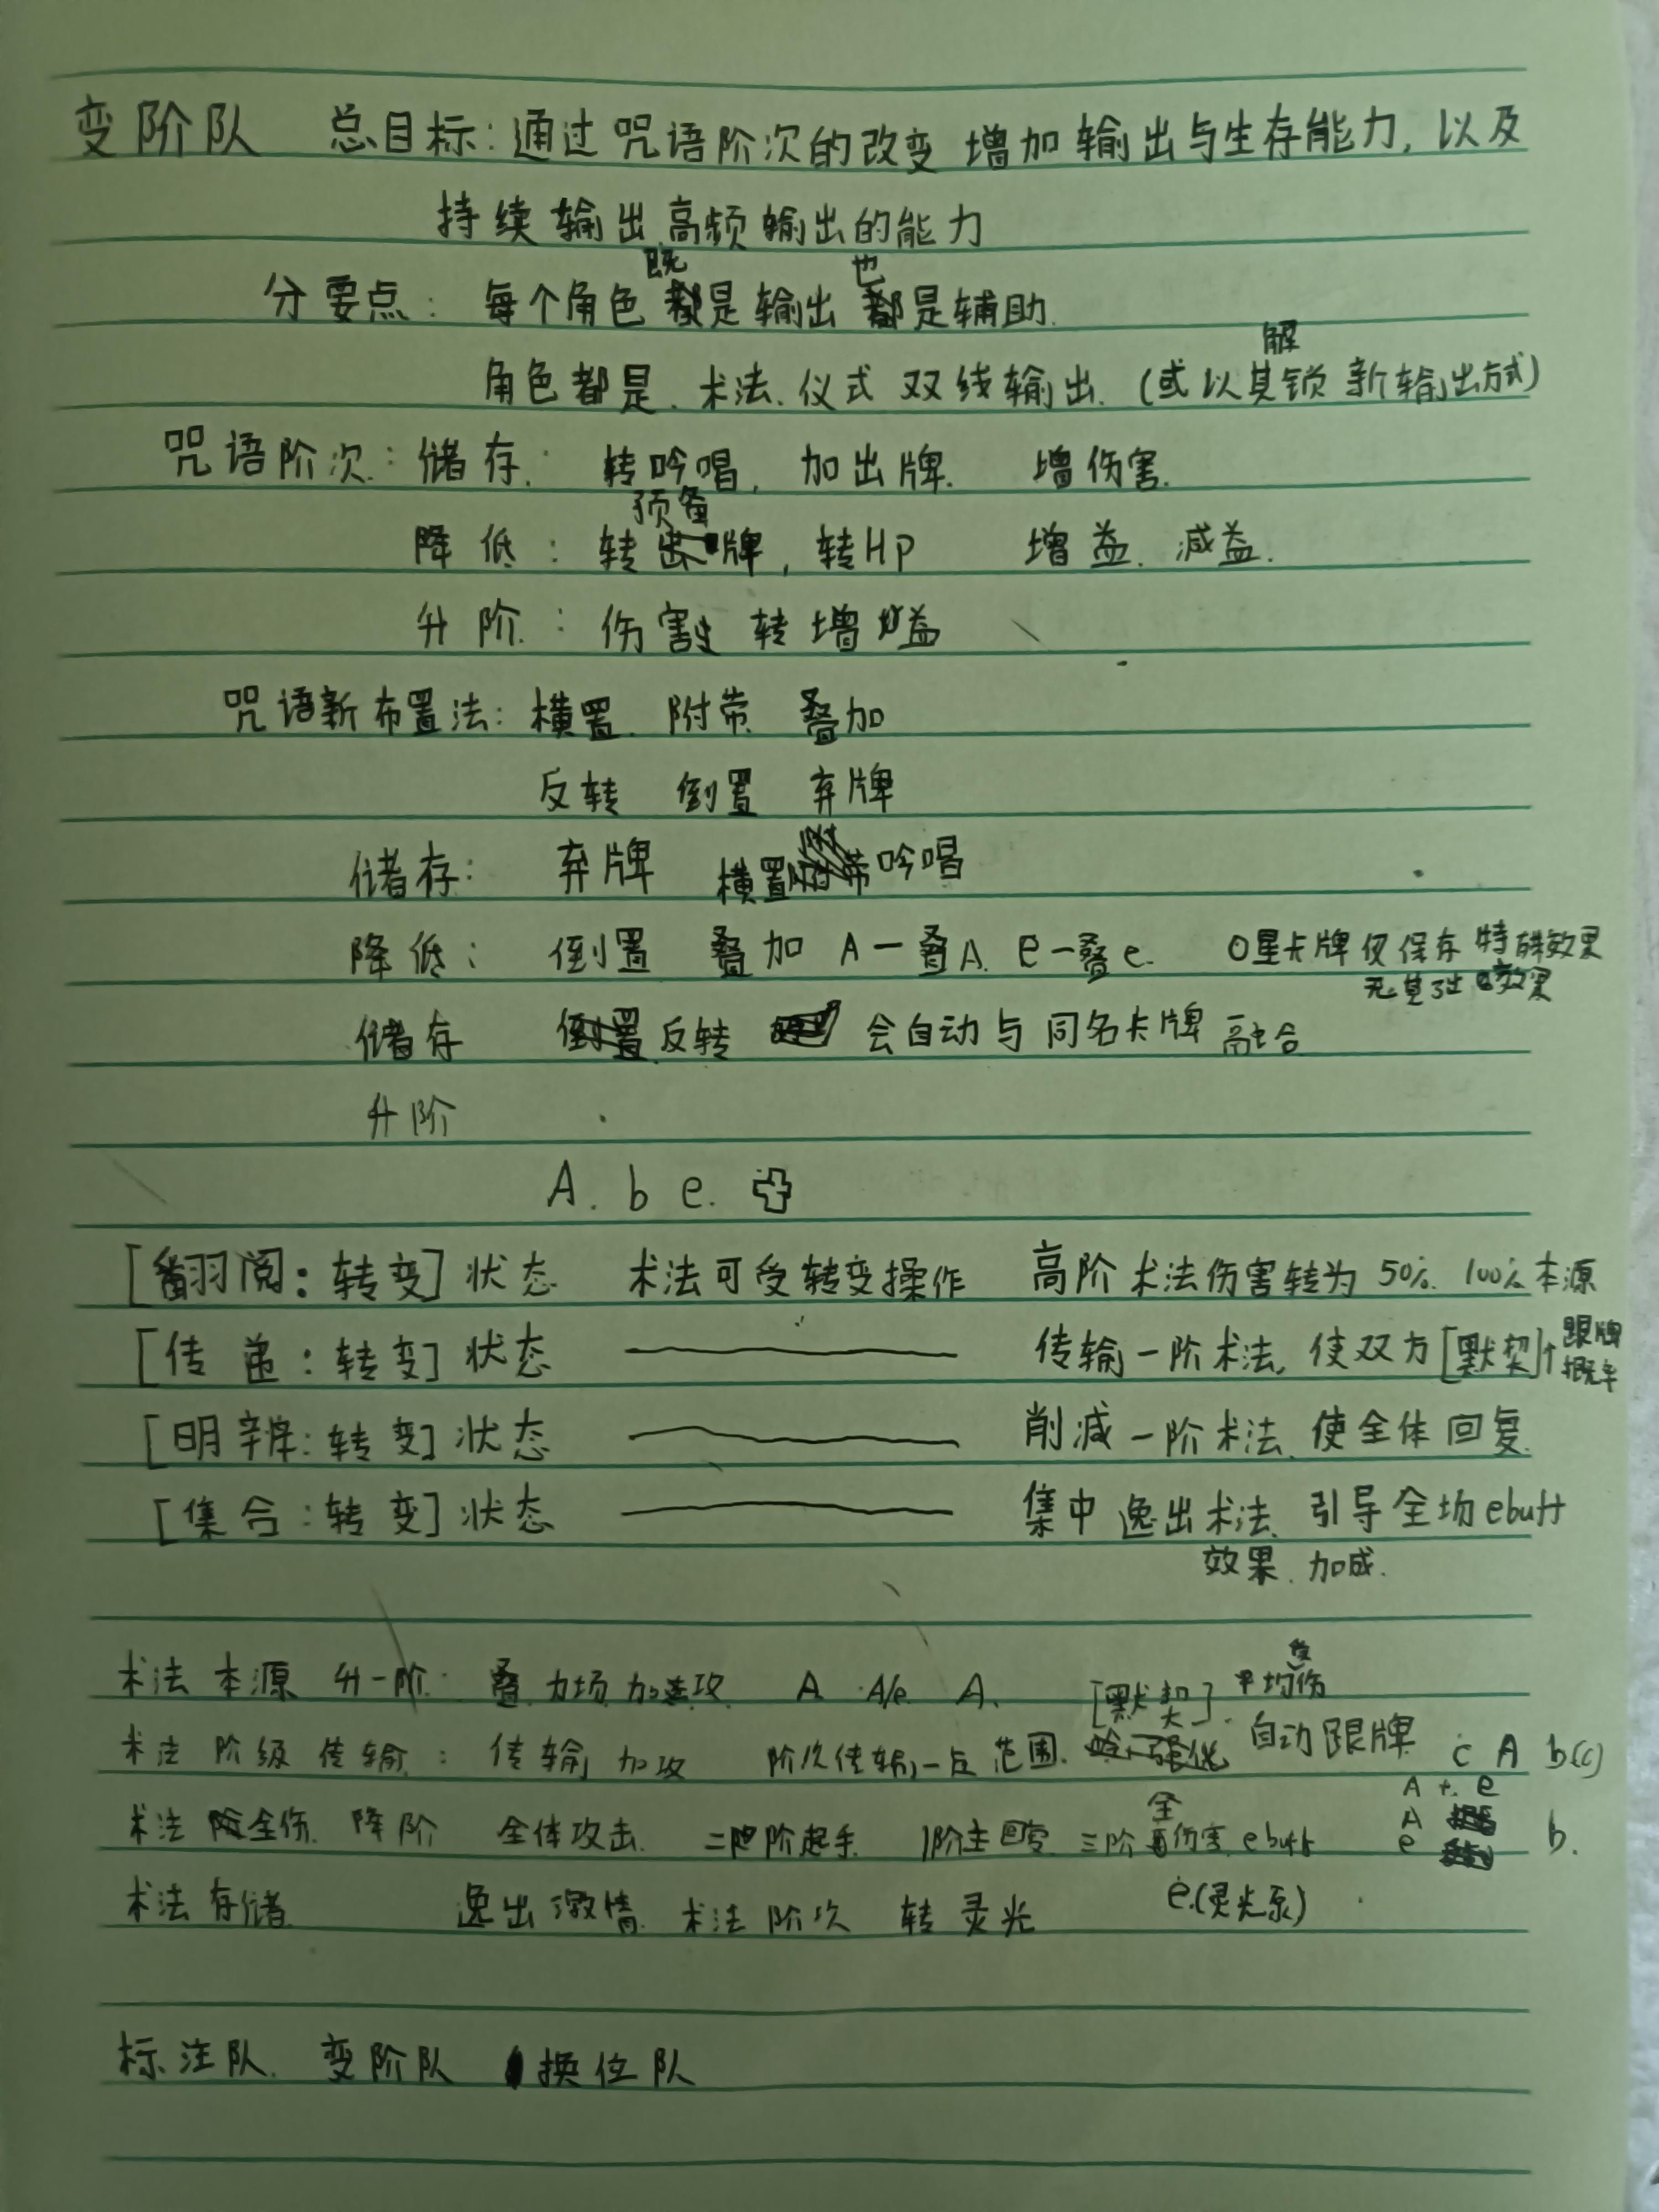 变阶队 总目标:通过咒语阶次的改变 增加输出与生存能力,以及
持续输出 高频输出的能力
分要点: 每个角色既是输出也是辅助.
角色都是.术法.仪式 双线输出.(或以其解锁新输出方式)
咒语阶次:储存: 转吟唱, 加出牌. 增伤害.
降低: 转预备牌, 转HP 增益. 减益.
升阶: 伤害 转增益
咒语新布置法:横置. 附带. 叠加
反转 倒置 弃牌
储存: 弃牌 横置吟唱
降低: 倒置 叠加 A一叠A. e一叠e. 0星卡牌仅保存特殊效果
无基础效果
储存 反转 会自动与同名卡牌融合
升阶
A. b e.
[翻阅:转变]状态 术法可受转变操作 高阶术法伤害转为50%. 100%本源
[传递:转变]状态 传输一阶术法,使双方[默契]↑跟牌概率
[明辨:转变]状态 削减一阶术法.使全体回复.
[集合:转变]状态 集中逸出术法. 引导全场ebuff
效果.加成.
术法本源 升一阶: 叠力场.加攻. A A/e A. [默契]. 平均受伤
术法阶级传输: 传输加攻 阶次传输一点 范围. 自动跟牌 c A b(c)
A + e
术法全伤.降阶 全体攻击. 二阶起手. 1阶主回复 三阶全伤害.ebuff A e b.
术法存储 逸出激情. 术法阶次 转灵光 e.(灵光系)
标注队. 变阶队 换位队